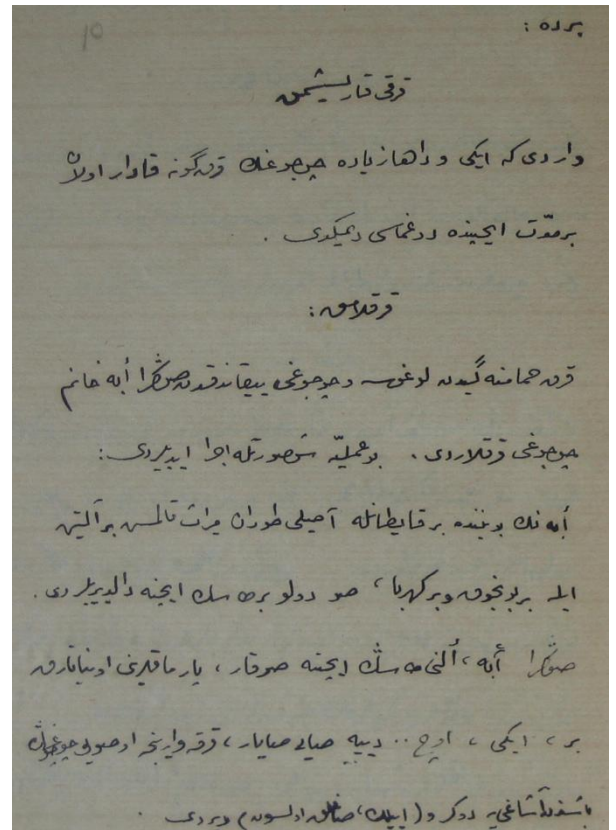 10
برده :
قرقی قاریشمق
واردی که ایکی و داها زیاده چوجوغك قرق گونه قادار اولان
برمدّت ایچینده دوغماسی دیمکدی .
قرقلامق :
قرق حمامنه گیدن لوغوسه و چوجوغی ییقاندقدن صوڭرا أبه خانم
چوجوغی قرقلاردی . بو عملیّه شو صورتله اجرا ایدیلیردی :
أبه نك بویننده بر قایطانله آصیلی طوران میراث قالمش بر آلتین
ایله بر بونجوق و بر کهربا ، صو دولو بر طاسك ایچنه دالدیریلردی .
صوڭرا أبه ، ألنی طاسڭ ایچنه صوقار ، پارماقلرینی اویناتارق
بر ، ایکی ، اوچ .. دییه صیایی صایار ، قرقه وارنجه او صویی چوجوغڭ
باشندن آشاغی یه دوکر و (ایلیك ، صاغلق اولسون) دیردی .